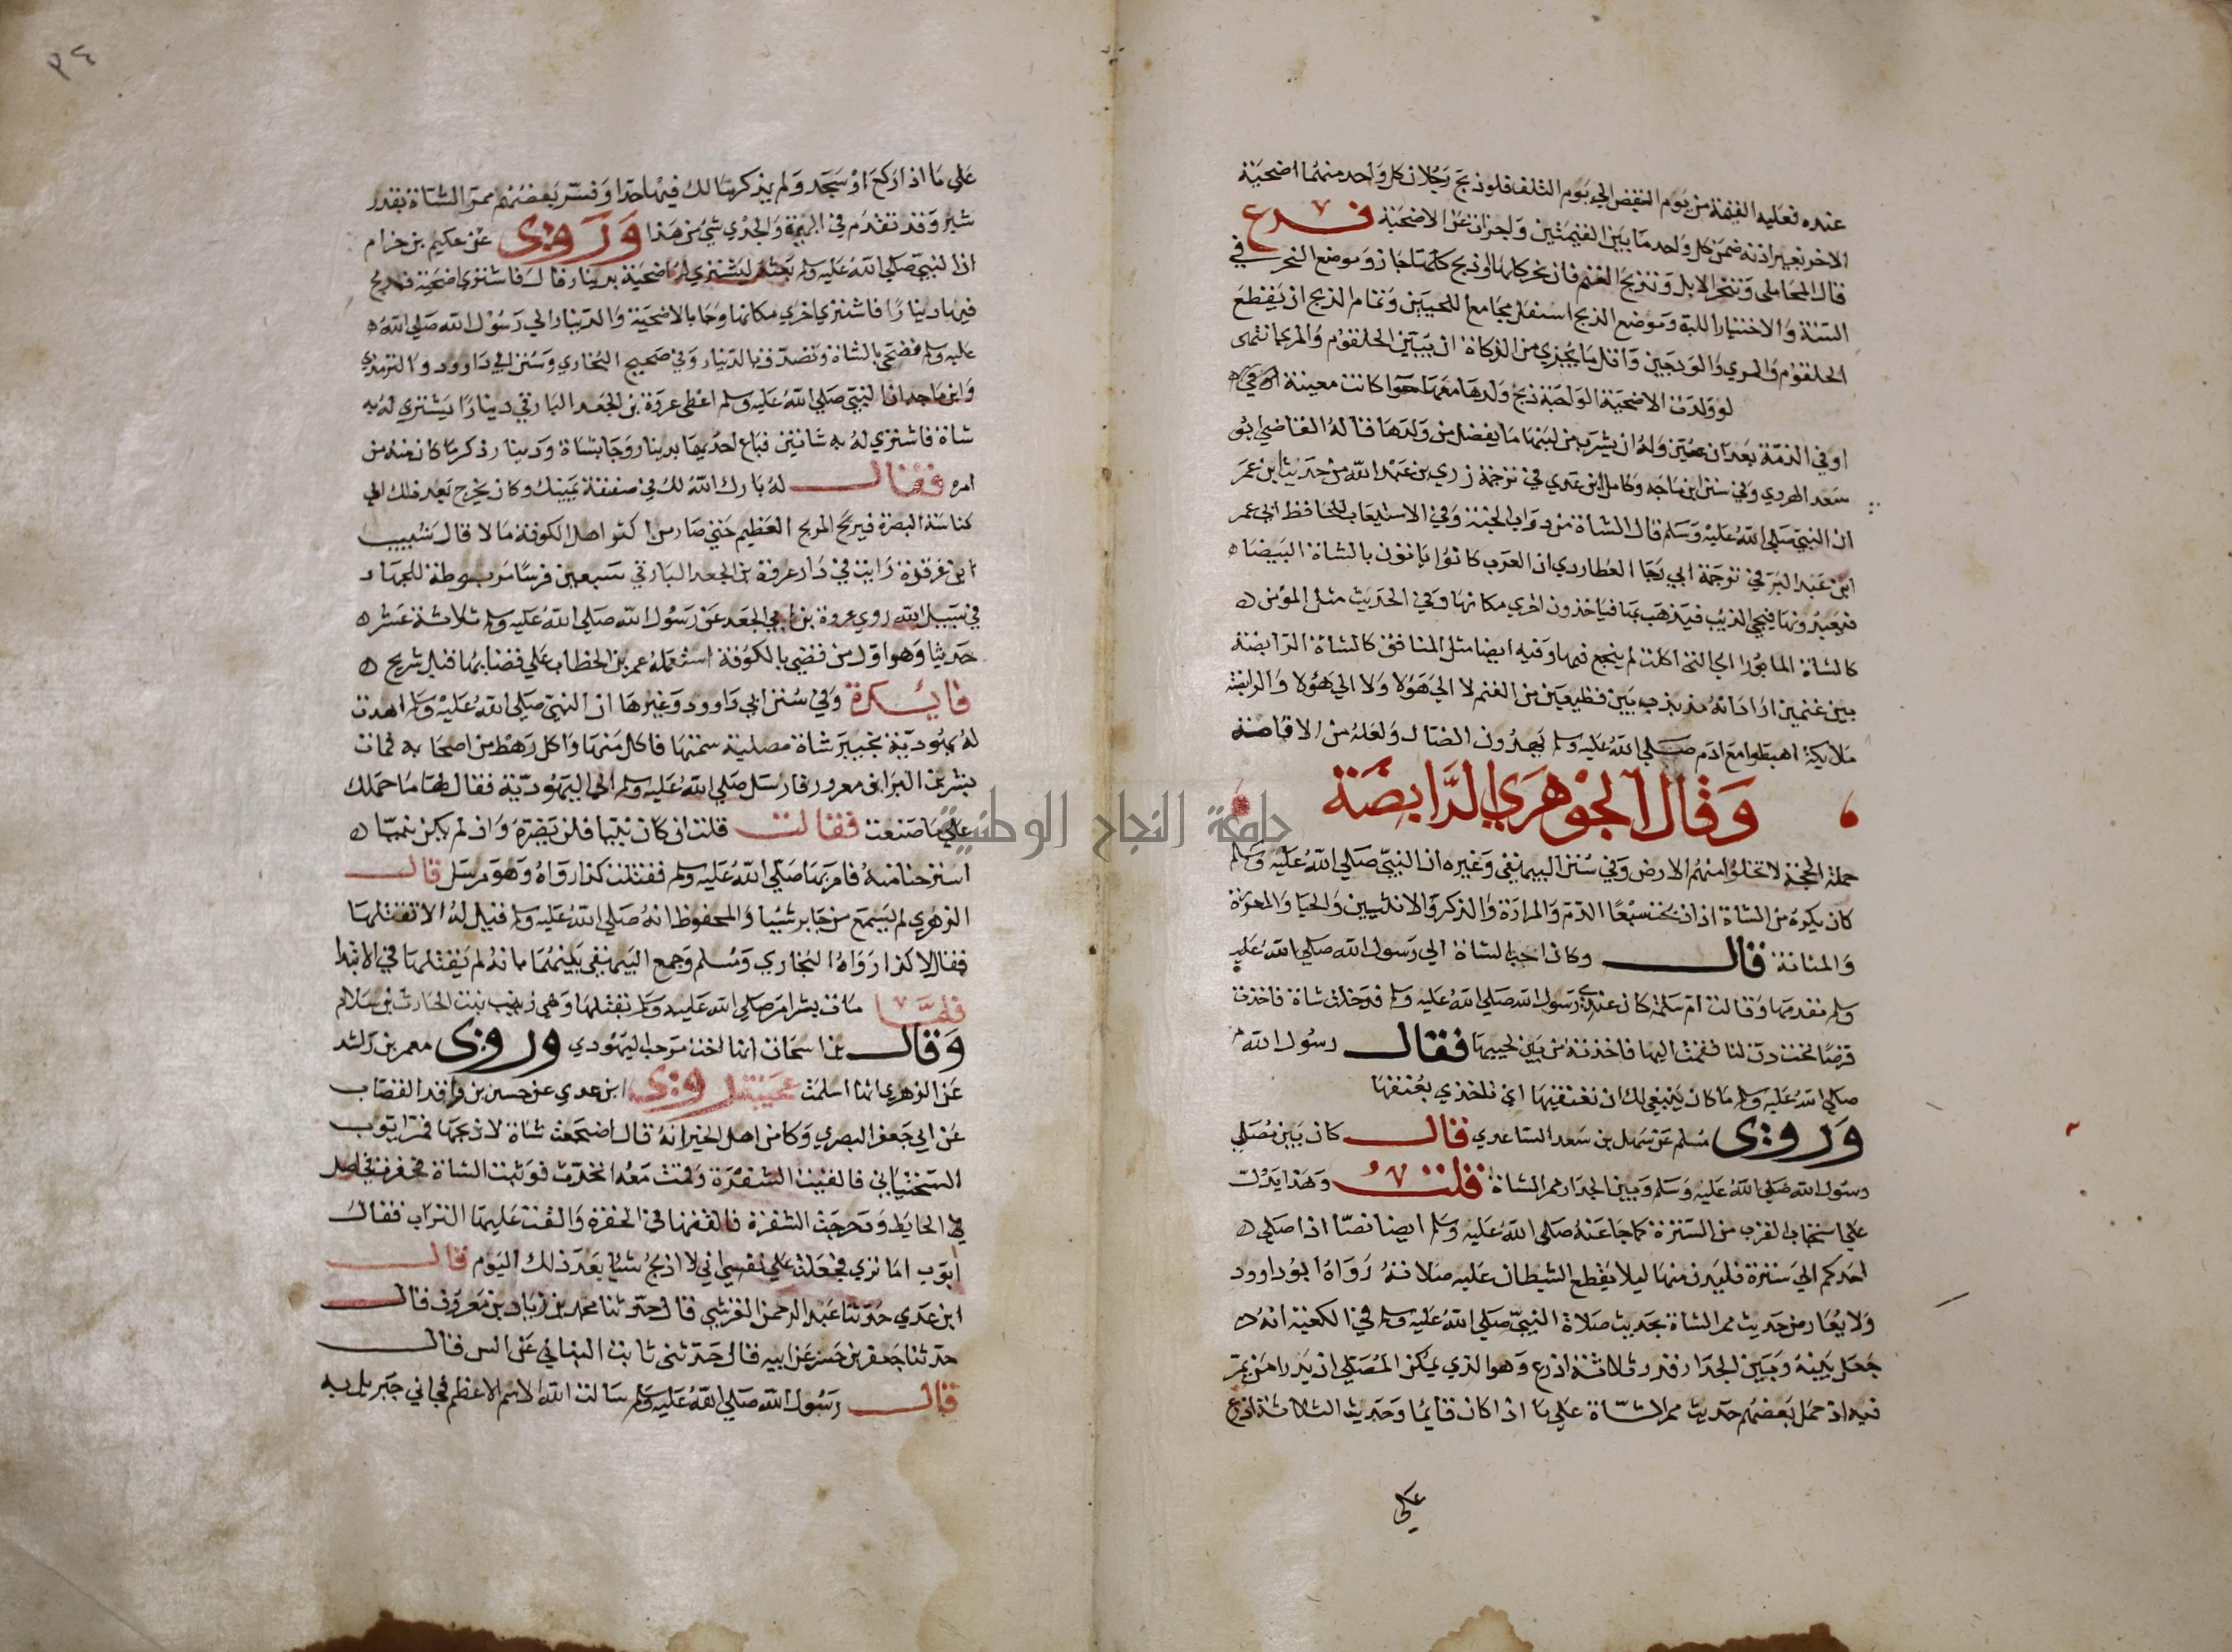 عنده فعليه القيمة من يوم القبض الي يوم التلف فلو ذبح رجلان كل واحد منهما اضحية
الاخر بغير اذنه ضمن كل واحد ما بين القيمتين واجزات عن الاضحية فرع
قال المحاملي وتنحر الابل وتذبح الغنم فان نحر كلها او ذبح كلها جاز وموضع النحر في
السنة والاختيار اللبة وموضع الذبح اسفل مجامع اللحيين وتمام الذبح ان يقطع
الحلقوم والمري والودجين واقل ما يجزي من الذكاة ان يبين الحلقوم والمري انتهى
لو ولدت الاضحية الواجبة ذبح ولدها معها سوا كانت معينة
او في الذمة بعد ان عين وله ان يشرب من لبنها ما يفضل من ولدها قاله القاضي ابو
سعد الهروي وفي سنن ابن ماجه وكامل ابن عدي في ترجمة زربي بن عبد الله من حديث ابن عمر
ان النبي صلي الله عليه وسلم قال الشاة من دواب الجنة وفي الاستيعاب للحافظ ابي عمر
ابن عبد البر في ترجمة ابي رجا العطاردي ان العرب كانوا ياتون بالشاة البيضا
فيعبدونها فيجي الذيب فيذهب بها فياخذون اخري مكانها وفي الحديث مثل المؤمن
كالشاة المابورة اي التي اكلت لم ينجع فيها وفيه ايضا مثل المنافق كالشاة الرابضة
بين غنمين اراد انه مذبذب بين قطيعين من الغنم لا الي هولا ولا الي هولا والرابضة
ملايكة اهبطوا مع ادم صلي الله عليه وسلم يهدون الضال ولعله من الاقامة
وقال الجوهري الرابضة
حملة الحجة لا تخلوا منهم الارض وفي سنن البيهقي وغيره ان النبي صلي الله عليه وسلم
كان يكره من الشاة اذا ذبحت سبعا الدم والمرارة والذكر والانثيين والحيا والغدة
والمثانة قال وكان احب الشاة الي رسول الله صلي الله عليه
وسلم مقدمها وقالت ام سلمة كان عندي رسول الله صلي الله عليه وسلم فدخلت شاة فاخذت
قرصا تحت دن لنا فقمت اليها فاخذته من بين لحييها فقال رسول الله
صلي الله عليه وسلم ما كان ينبغي لك ان تعنقيها اي تاخذي بعنقها
وروى مسلم عن سهل بن سعد الساعدي قال كان بين مصلي
رسول الله صلي الله عليه وسلم وبين الجدار ممر الشاة قلت وهذا يدل
علي استحباب القرب من السترة كما جا عنه صلي الله عليه وسلم ايضا نصا اذا صلي
احدكم الي سترة فليدن منها ليلا يقطع الشيطان عليه صلاته رواه ابو داوود
ولا يعارض حديث ممر الشاة بحديث صلاة النبي صلي الله عليه وسلم في الكعبة انه
جعل بينه وبين الجدار قدر ثلاثة اذرع وهو الذي يمكن المصلي ان يدرا من يمر
فيه اذ حمل بعضهم حديث ممر الشاة علي ما اذا كان قايما وحديث الثلاثة اذرع
علي
٣٤
علي ما اذا ركع او سجد ولم يذكر مالك فيها حدا وفسر بعضهم ممر الشاة بقدر
شبر وقد تقدم في البهمة والجدي شي من هذا وروى عن حكيم بن حزام
ان النبي صلي الله عليه وسلم بعثه ليشتري له اضحية بدينار قال فاشتري اضحية فربح
فيها دينارا فاشتري اخري مكانها وجا بالاضحية والدينار الي رسول الله صلي الله
عليه وسلم فضحى بالشاة وتصدق بالدينار وفي صحيح البخاري وسنن ابي داوود والترمذي
وابن ماجه ان النبي صلي الله عليه وسلم اعطى عروة بن الجعد البارقي دينارا يشتري له به
شاة فاشتري له به شاتين فباع احديهما بدينار وجا بشاة ودينار وذكر ما كان منه من
امره فقال له بارك الله لك في صفقة يمينك وكان يخرج بعد ذلك الي
كناسة البصرة فيربح الربح العظيم حتي صار من اكثر اهل الكوفة مالا قال شبيب
ابن غرقدة رايت في دار عروة بن الجعد البارقي سبعين فرسا مربوطة للجهاد
في سبيل الله روي عروة بن ابي الجعد عن رسول الله صلي الله عليه وسلم ثلاثة عشر
حديثا وهو اول من قضي بالكوفة استعمله عمر بن الخطاب علي قضايها قبل شريح
فايدة وفي سنن ابي داوود وغيرها ان النبي صلي الله عليه وسلم اهدت
له يهودية بخيبر شاة مصلية سمتها فاكل منها واكل رهط من اصحابه فمات
بشر بن البرا بن معرور فارسل صلي الله عليه وسلم الي اليهودية فقال لها ما حملك
علي ما صنعت فقالت قلت ان كان نبيا فلن يضره وان لم يكن نبيا
استرحنا منه فامر بها صلي الله عليه وسلم فقتلت كذا رواه وهو مرسل قال
الزهري لم يسمع من جابر شيا والمحفوظ انه صلي الله عليه وسلم قيل له الا تقتلها
فقال لا كذا رواه البخاري ومسلم وجمع البيهقي بينهما بانه لم يقتلها في الابتدا
فلما مات بشر امر صلي الله عليه وسلم بقتلها وهي زينب بنت الحارث بن سلام
وقال بن اسحاق انها اخت مرحب اليهودي وروى معمر بن راشد
عن الزهري انها اسلمت وروى ابن عدي عن حسين بن واقد القصاب
عن ابي جعفر البصري وكان من اهل الخير انه قال اضجعت شاة لاذبحها فمر ايوب
السختياني فالقيت الشفرة وقمت معه اتحدث فوثبت الشاة فحفرت في اصل
الحايط ودحرجت الشفرة فالقتها في الحفرة والقت عليها التراب فقال
ايوب اما تري فجعلت علي نفسي اني لا اذبح شيا بعد ذلك اليوم قال
ابن عدي حدثنا عبد الرحمن القرشي قال حدثنا محمد بن زياد بن معروف قال
حدثنا جعفر بن حسن عن ابيه قال حدثني ثابت البناني عن انس قال
قال رسول الله صلي الله عليه وسلم سالت الله الاسم الاعظم فجاني جبريل به
جامعة النجاح الوطنية